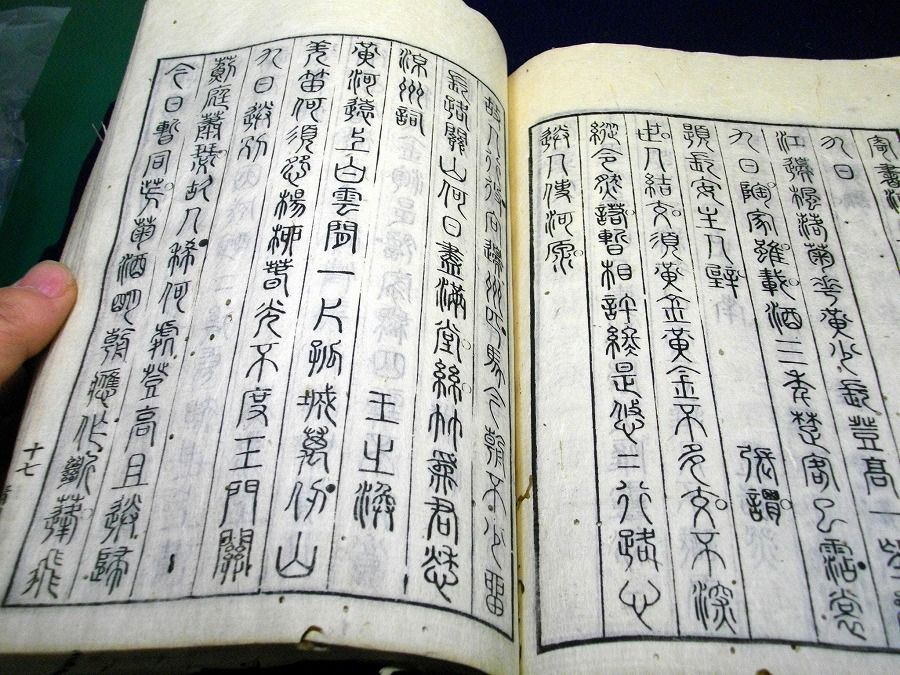 九日
江邊楓落菊花黃少長登高一望
九日陶家雖載酒三年楚客已霑裳
題長安主人壁 張謂
世人結交須黃金黃金不多交不深
縱令然諾暫相許終是悠〻行路心
送人使河源
故人行役向邊州匹馬今朝不少留
長路關山何日盡滿堂絲竹為君愁
涼州詞 王之渙
黃河遠上白雲間一片孤城萬仞山
羌笛何須怨楊柳春光不度玉門關
九日送別
薊庭蕭瑟故人稀何處登高且送歸
今日暫同芳菊酒明朝應作斷蓬飛
十七